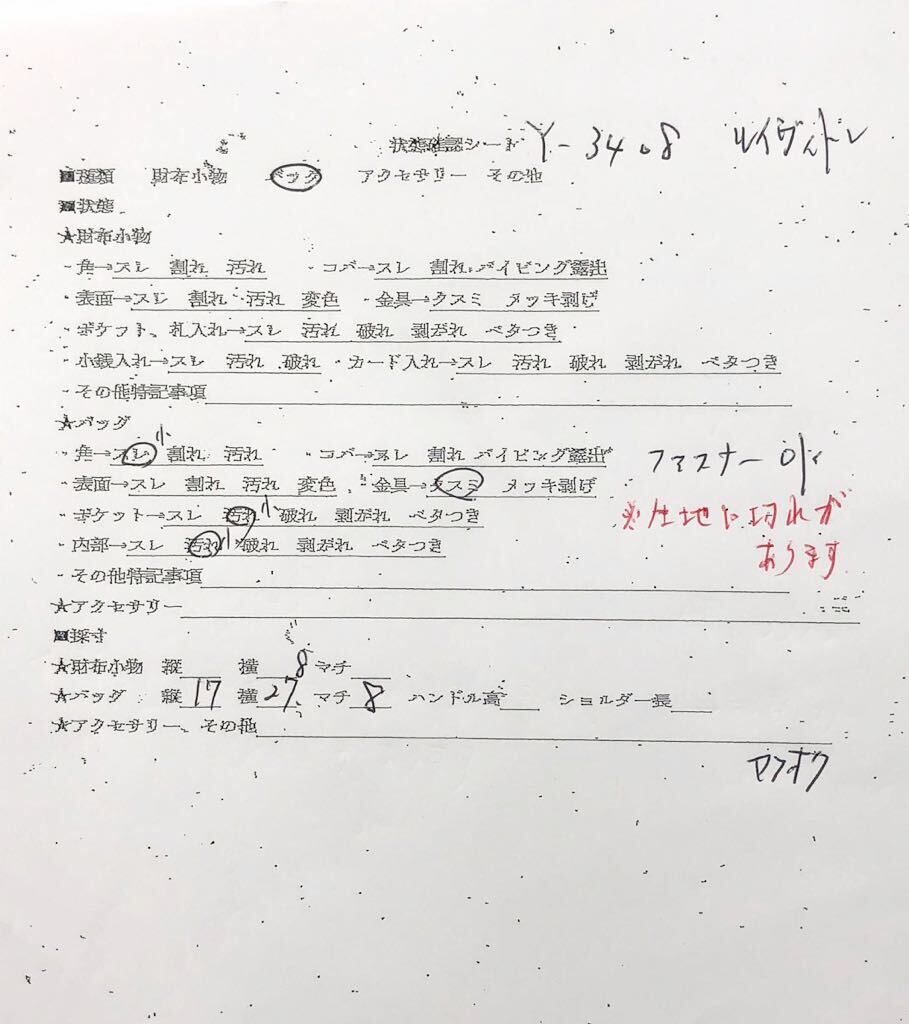 状態確認シート Y-3408 ルイヴィトン
■種類 財布小物 バッグ アクセサリー その他
■状態
★財布小物
・角→スレ 割れ 汚れ ・コバ→スレ 割れ パイピング露出
・表面→スレ 割れ 汚れ 変色 ・金具→クスミ メッキ剥げ
・ポケット、札入れ→スレ 汚れ 破れ 剥がれ ベタつき
・小銭入れ→スレ 汚れ 破れ ・カード入れ→スレ 汚れ 破れ 剥がれ ベタつき
・その他特記事項
★バッグ
・角→スレ小 割れ 汚れ ・コバ→スレ 割れ パイピング露出
ファスナーOK
・表面→スレ 割れ 汚れ 変色 ・金具→クスミ メッキ剥げ
・ポケット→スレ 汚れ小 破れ 剥がれ ベタつき
※生地に切れが
あります
・内部→スレ 汚れ小 破れ 剥がれ ベタつき
・その他特記事項
★アクセサリー
■採寸
★財布小物 縦 横 8 マチ
★バッグ 縦 17 横 27 マチ 8 ハンドル高 ショルダー長
★アクセサリー、その他
ヤフオク